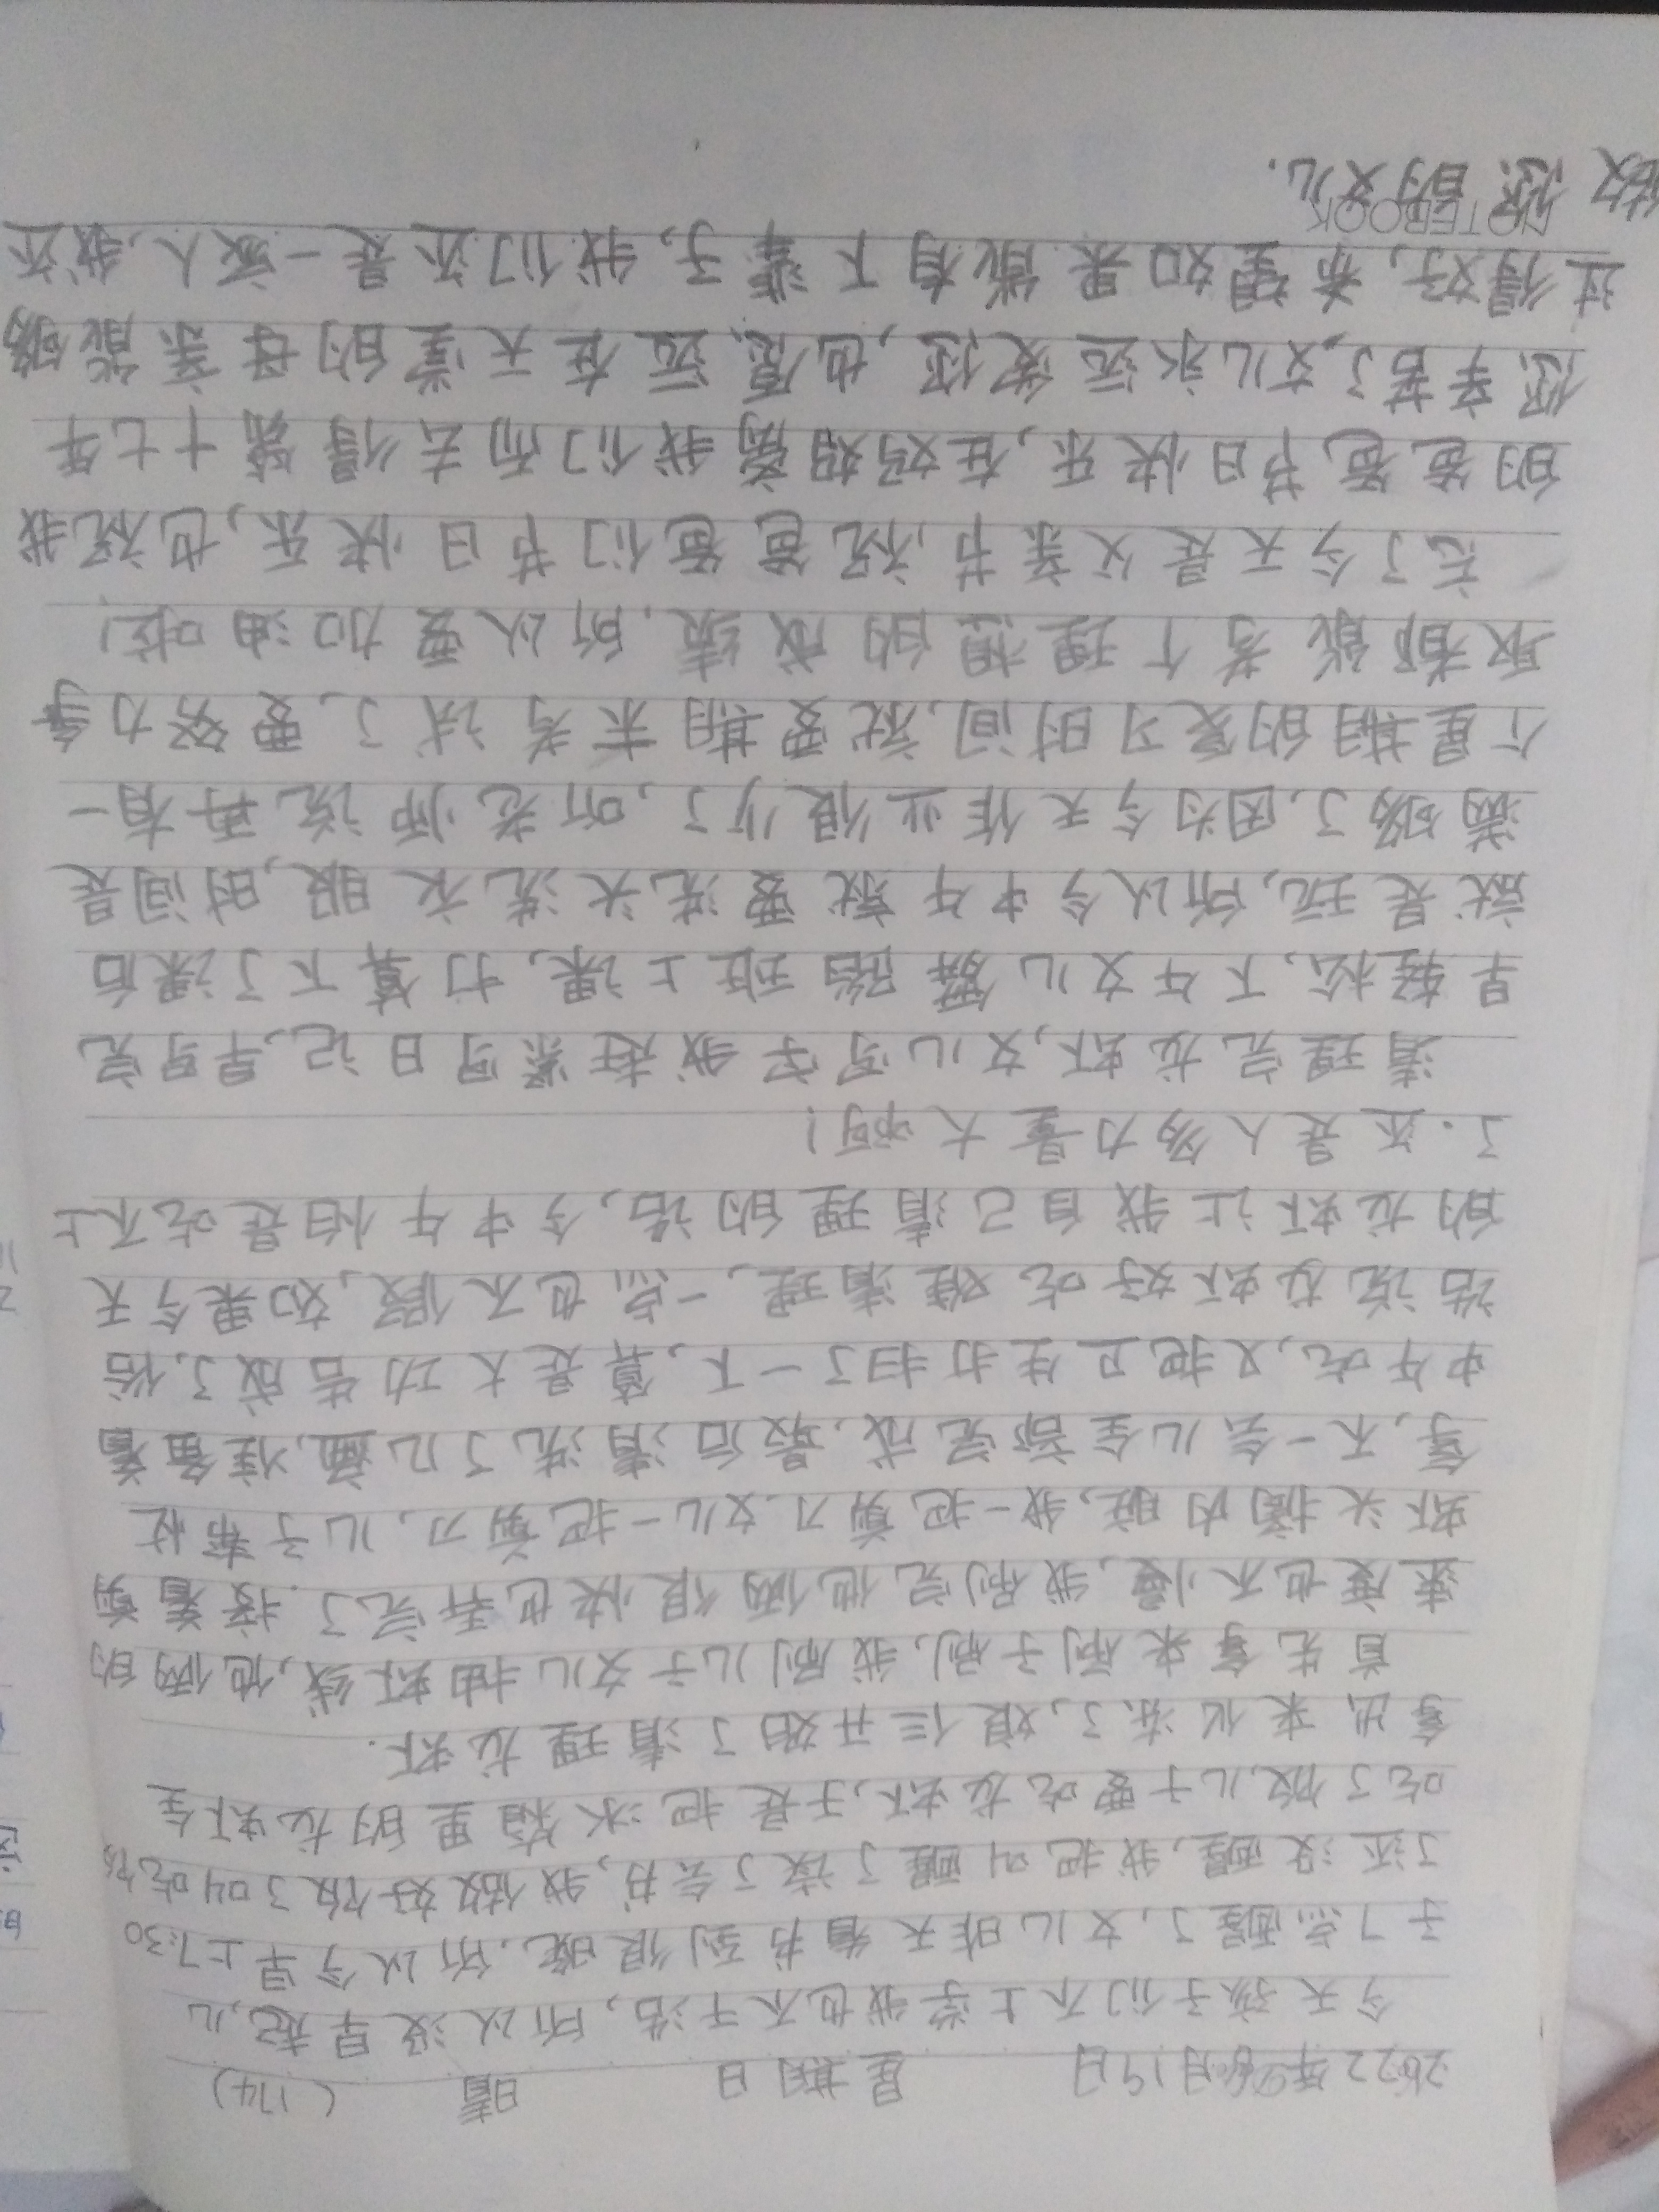 2022年6月19日 星期日 晴 (174)
今天孩子们不上学我也不干活,所以没早起,儿
子7点醒了,女儿昨天看书到很晚,所以今早上7:30
了还没醒,我把叫醒了读了会书,我做好饭了叫吃饭
吃了饭儿子要吃龙虾,于是把冰箱里的龙虾全
拿出来化冻了,娘仨开始了清理龙虾.
首先拿来刷子刷,我刷儿子女儿抽虾线,他俩的
速度也不慢,我刷完他俩很快也弄完了.接着剪
虾头摘内脏,我一把剪刀女儿一把剪刀,儿子帮忙
拿,不一会儿全部完成,最后清洗了几遍,准备着
中午吃,又把卫生打扫了一下,算是大功告成了,俗
话说龙虾好吃难清理,一点也不假,如果今天
的龙虾让我自己清理的话,今中午怕是吃不上
了.还是人多力量大啊!
清理完龙虾,女儿写字我赶紧写日记,早写完
早轻松,下午女儿舞蹈班上课,打算下了课后
就是玩,所以今中午就要洗头洗衣服,时间是
满够了,因为今天作业很少了,听老师说再有一
个星期的复习时间,就要期末考试了,要努力争
取都能考个理想的成绩,所以要加油啦!
忘了今天是父亲节,祝爸爸们节日快乐,也祝我
的爸爸节日快乐,在妈妈离我们而去得第十七年
您辛苦了,女儿永远爱您,也愿远在天堂的母亲能够
过得好,希望如果能有下辈子,我们还是一家人,我还
做您的女儿.
NOTEBOOK